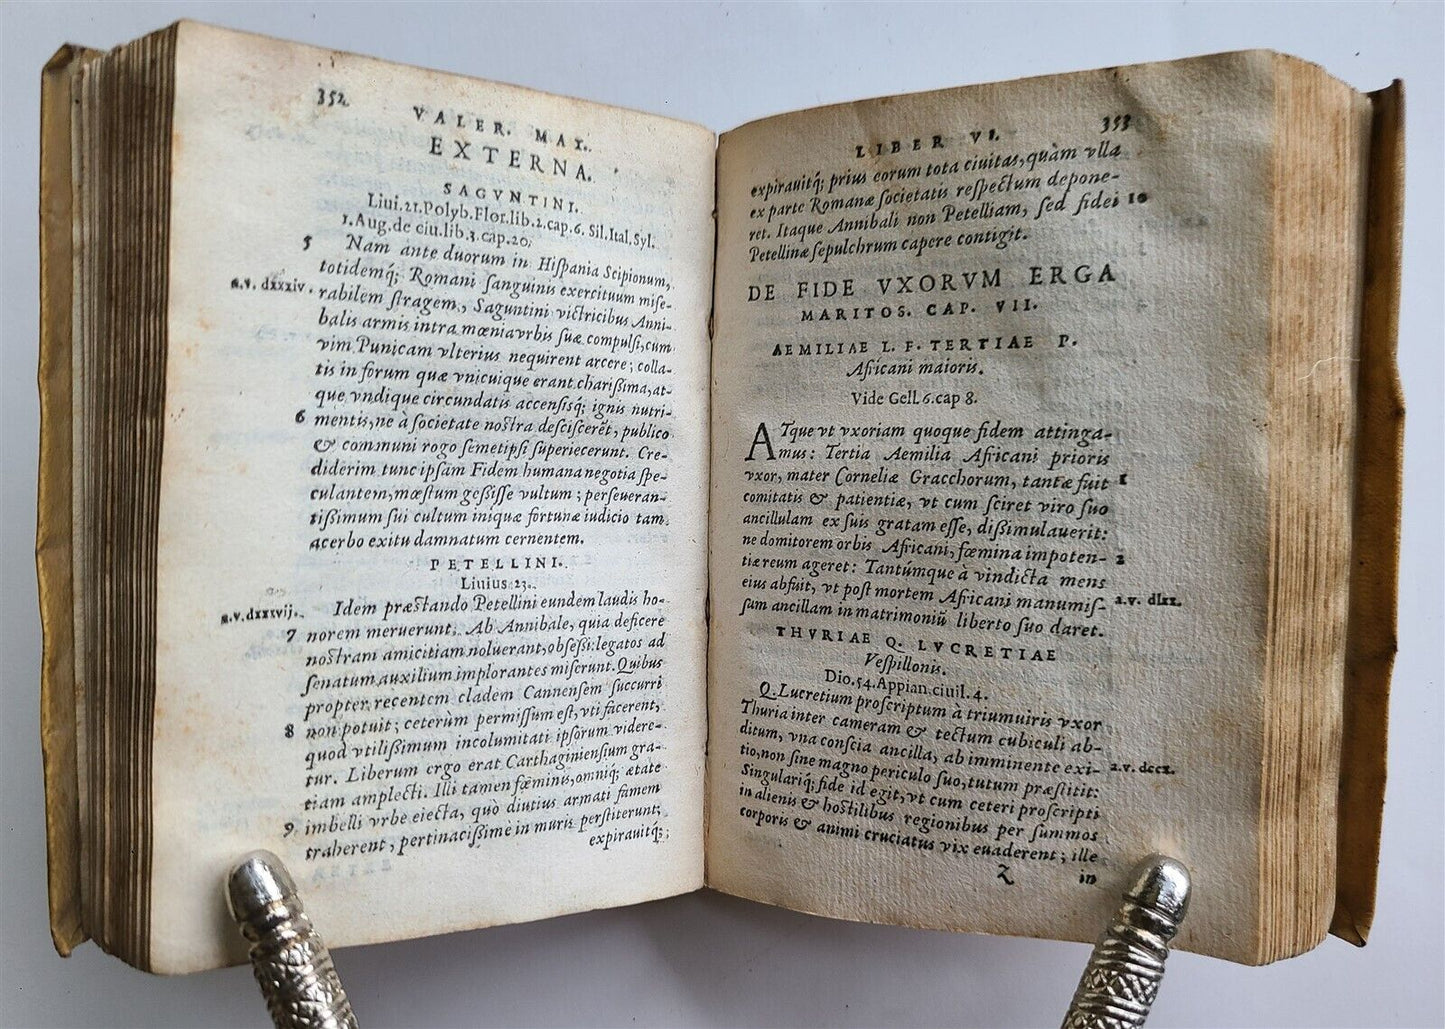 352
VALER. MAX.
EXTERNA.
SAGVNTINI.
Liui. 21. Polyb. Flor. lib. 2. cap. 6. Sil. Ital. Syl.
1. Aug. de ciu. lib. 3. cap. 20.
5 Nam ante duorum in Hiſpania Scipionum,
totidemq́; Romani ſanguinis exercituum miſe-
a.v. dxxxiv. rabilem ſtragem, Saguntini victricibus Anni-
balis armis intra mœnia vrbis ſuæ compulſi, cum
vim Punicam vlterius nequirent arcere; colla-
tis in forum quæ vnicuique erant chariſſima, at-
que vndique circundatis accenſisq́; ignis nutri-
6 mentis, ne à ſocietate noſtra deſciſcerẽt, publico
& communi rogo ſemetipſi ſuperiecerunt. Cre-
diderim tunc ipſam Fidem humana negotia ſpe-
culantem, mœſtum geſſiſſe vultum; perſeueran-
tiſſimum ſui cultum iniquæ fortunæ iudicio tam
acerbo exitu damnatum cernentem.
PETELLINI.
Liuius 23.
a.v. dxxxvij. Idem præſtando Petellini eundem laudis ho-
7 norem meruerunt. Ab Annibale, quia deficere
noſtram amicitiam noluerant, obſeſſi: legatos ad
ſenatum auxilium implorantes miſerunt. Quibus
propter recentem cladem Cannenſem ſuccurri
8 non potuit; ceterùm permiſſum eſt, vti facerent,
quod vtiliſſimum incolumitati ipſorum videre-
tur. Liberum ergo erat Carthaginienſium gra-
tiam amplecti. Illi tamen fœminis, omniq́; ætate
9 imbelli vrbe eiecta, quò diutius armati famem
traherent, pertinaciſſimè in muris perſtiterunt;
expirauitq́;
LIBER VI. 353
expirauitq́; prius eorum tota ciuitas, quàm vlla
ex parte Romanæ ſocietatis reſpectum depone-
ret. Itaque Annibali non Petelliam, ſed fidei 10
Petellinæ ſepulchrum capere contigit.
DE FIDE VXORVM ERGA
MARITOS. CAP. VII.
AEMILIAE L. F. TERTIAE P.
Africani maioris.
Vide Gell. 6. cap 8.
ATque vt vxoriam quoque fidem attinga-
mus: Tertia Aemilia Africani prioris
vxor, mater Corneliæ Gracchorum, tantæ fuit 1
comitatis & patientiæ, vt cum ſciret viro ſuo
ancillulam ex ſuis gratam eſſe, diſſimulauerit:
ne domitorem orbis Africani, fœmina impoten- 2
tiæ reum ageret: Tantúmque à vindicta mens
eius abfuit, vt poſt mortem Africani manumiſ- a.v. dlxx.
ſam ancillam in matrimoniũ liberto ſuo daret.
THVRIAE Q. LVCRETIAE
Veſpillonis.
Dio. 54. Appian. ciuil. 4.
Q. Lucretium proſcriptum à triumuiris vxor
Thuria inter cameram & tectum cubiculi ab-
ditum, vna conſcia ancilla, ab imminente exi- a.v. dccx.
tio, non ſine magno periculo ſuo, tutum præſtitit:
Singulariq́; fide id egit, vt cum ceteri proſcripti
in alienis & hoſtilibus regionibus per ſummos
corporis & animi cruciatus vix euaderent; ille
Z in